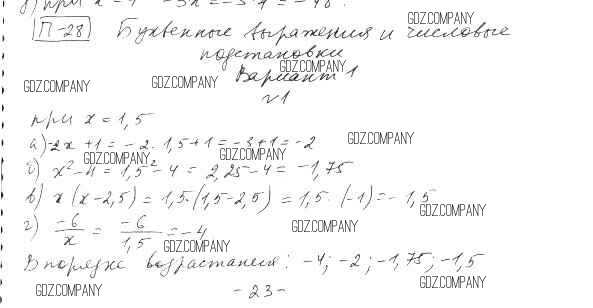 при x = 4 -3x = -3·4 = -48.
GDZ.COMPANY
П-28 Буквенные выражения и числовые
подстановки
GDZ.COMPANY
Вариант 1
GDZ.COMPANY
GDZ.COMPANY
√1
при x = 1,5
а) -2x + 1 = -2·1,5 + 1 = -3 + 1 = -2
GDZ.COMPANY
GDZ.COMPANY
GDZ.COMPANY
б) x² - 4 = 1,5² - 4 = 2,25 - 4 = -1,75
в) x (x - 2,5) = 1,5·(1,5 - 2,5) = 1,5·(-1) = -1,5
GDZ.COMPANY
г) -6/x = -6/1,5 = -4
GDZ.COMPANY
GDZ.COMPANY
В порядке возрастания: -4; -2; -1,75; -1,5
GDZ.COMPANY
GDZ.COMPANY
-23-